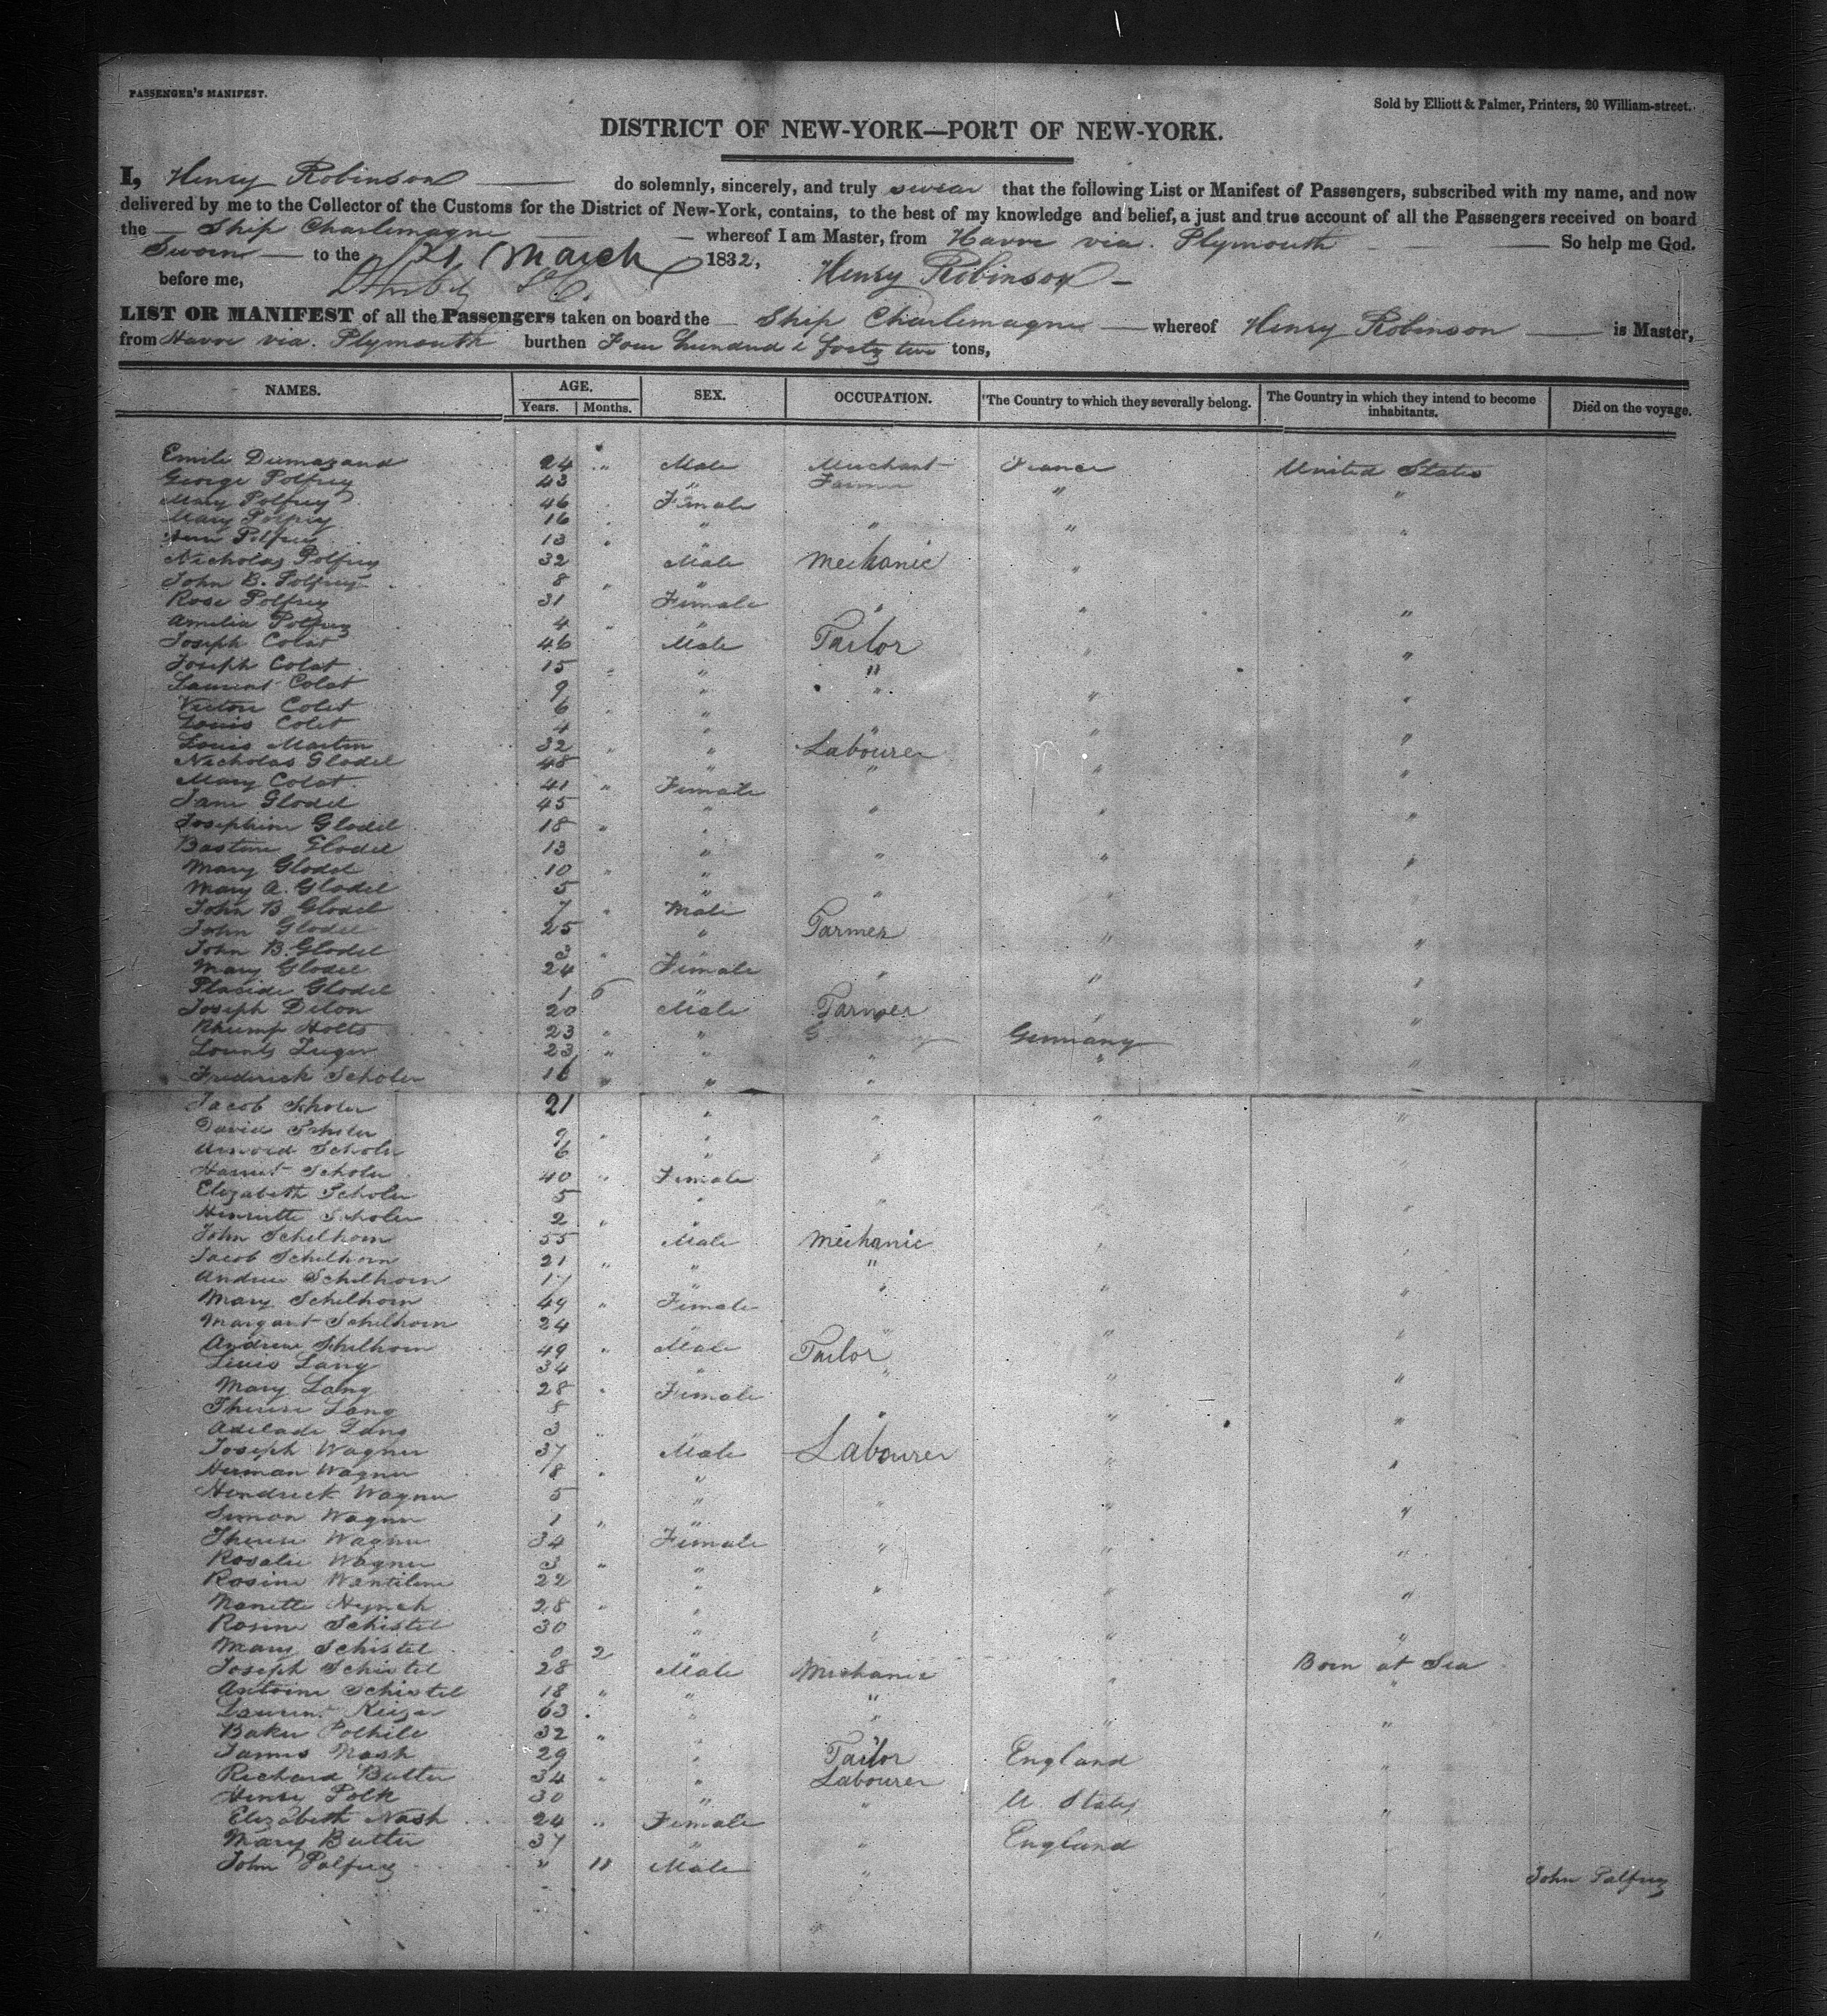 PASSENGER'S MANIFEST.
Sold by Elliott & Palmer, Printers, 20 William-street.
DISTRICT OF NEW-YORK—PORT OF NEW-YORK.
I, Henry Robinson do solemnly, sincerely, and truly swear that the following List or Manifest of Passengers, subscribed with my name, and now
delivered by me to the Collector of the Customs for the District of New-York, contains, to the best of my knowledge and belief, a just and true account of all the Passengers received on board
the Ship Charlemagne whereof I am Master, from Havre via. Plymouth So help me God.
Sworn to the 21 March 1832, Henry Robinson
before me,
LIST OR MANIFEST of all the Passengers taken on board the Ship Charlemagne whereof Henry Robinson is Master,
from Havre via. Plymouth burthen Four hundred & forty two tons,
NAMES. AGE. Years. Months. SEX. OCCUPATION. The Country to which they severally belong. The Country in which they intend to become inhabitants. Died on the voyage.
Emile Dumazand 24 " Male Merchant France United States
George Polfrey 43 " Farmer " "
Mary Polfrey 46 Female
Mary Polfrey 16 " " "
Ann Polfrey 13 " " "
Nicholas Polfrey 32 Male Mechanic "
John B. Polfrey 8 " "
Rose Polfrey 31 Female " " "
Amelia Polfrey 4 " "
Joseph Colat 46 Male Tailor " "
Joseph Colat 15 " " "
Laurent Colat 9 " " " "
Victor Colet 6 " "
Louis Colet 4 " " " "
Louis Martin 32 " " Labourer
Nicholas Glodel 48 " " " "
Mary Colat 41 " Female
Jane Glodel 45 " " " "
Josephine Glodel 18 " "
Bastine Glodel 13 " " " "
Mary Glodel 10 " "
Mary A. Glodel 5 " " "
John B Glodel 7 " Male
John Glodel 25 " Farmer " "
John B Glodel 3 "
Mary Glodel 24 Female " "
Placide Glodel 1 6 " "
Joseph Delon 20 Male Farmer " "
Holts 23 " " Germany
23 " " " " "
Frederick Scholer 16 " " "
Jacob Scholer 21 " " " "
David Scholer 9 " "
Arnold Scholer 6 " "
Harriet Scholer 40 " Female
Elizabeth Scholer 5 " " "
Henriette Scholer 2 " "
John Schelhorn 55 Male Mechanic " "
Jacob Schelhorn 21 " " "
Andrew Schelhorn 17 " " " "
Mary Schelhorn 49 " Female
Margaret Schelhorn 24 " " " "
Andrew Schelhorn 49 " Male Tailor
Louis Lang 34 " " " "
Mary Lang 28 " Female
Therese Lang 8 " " " "
Adelade Lang 3 "
Joseph Wagner 37 Male Labourer " "
Herman Wagner 8 " "
Hendrick Wagner 5 " " " "
Simon Wagner 1 " "
Therese Wagner 34 Female " " "
Rosalie Wagner 3 " "
Rosine Wentiline 22 " " " "
Nanette Hynch 28 " "
Rosine Schistel 30 " " " "
Mary Schistel 0 2 Born at Sea
Joseph Schistel 28 Male Mechanic " "
Antoine Schistel 18 " " "
Laurent Keizer 63 " " " " "
Baker Polhile 32 "
James Nash 29 " Tailor England
Richard Butler 34 " " Labourer "
Henry Polk 30 " " U. States
Elizabeth Nash 24 " Female "
Mary Butler 37 " " England
John Palfrey " 11 Male " John Palfrey